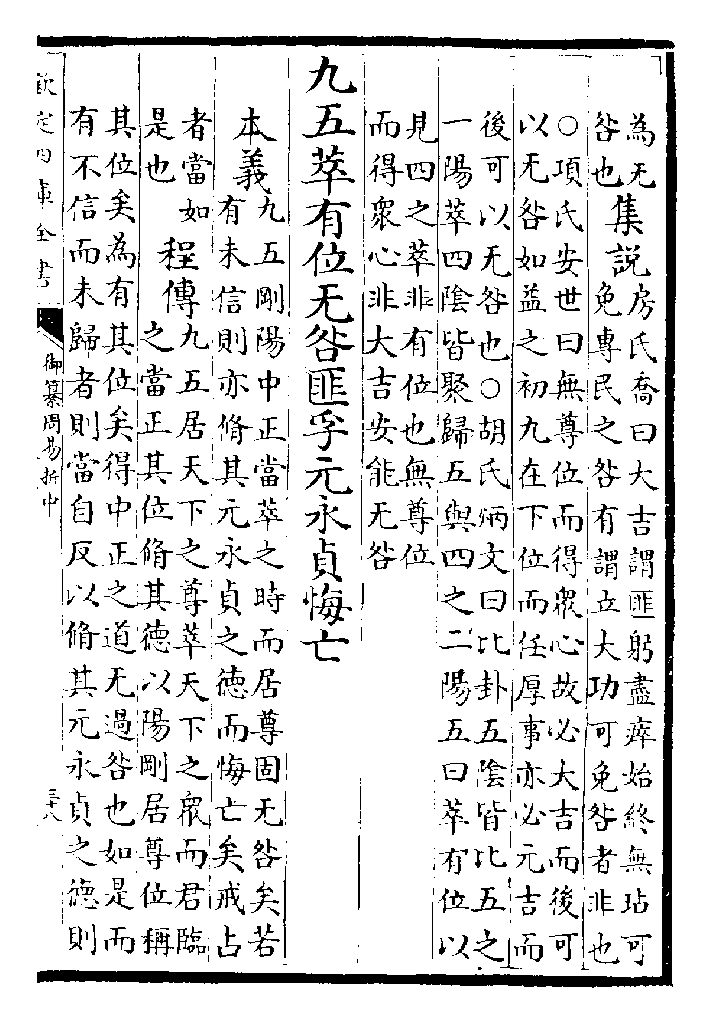 為无
咎也
集説
房氏喬曰大吉謂匪躬盡瘁始終無玷可
免專民之咎有謂立大功可免咎者非也
○項氏安世曰無尊位而得衆心故必大吉而後可
以无咎如益之初九在下位而任厚事亦必元吉而
後可以无咎也○胡氏炳文曰比卦五陰皆比五之
一陽萃四陰皆聚歸五與四之二陽五曰萃有位以
見四之萃非有位也無尊位
而得衆心非大吉安能无咎
九五萃有位无咎匪孚元永貞悔亡
本義
九五剛陽中正當萃之時而居尊固无咎矣若
有未信則亦脩其元永貞之德而悔亡矣戒占
者當如
是也
程傳
九五居天下之尊萃天下之衆而君臨
之當正其位脩其德以陽剛居尊位稱
其位矣為有其位矣得中正之道无過咎也如是而
有不信而未歸者則當自反以脩其元永貞之德則
欽定四庫全書
御纂周易折中
三十八